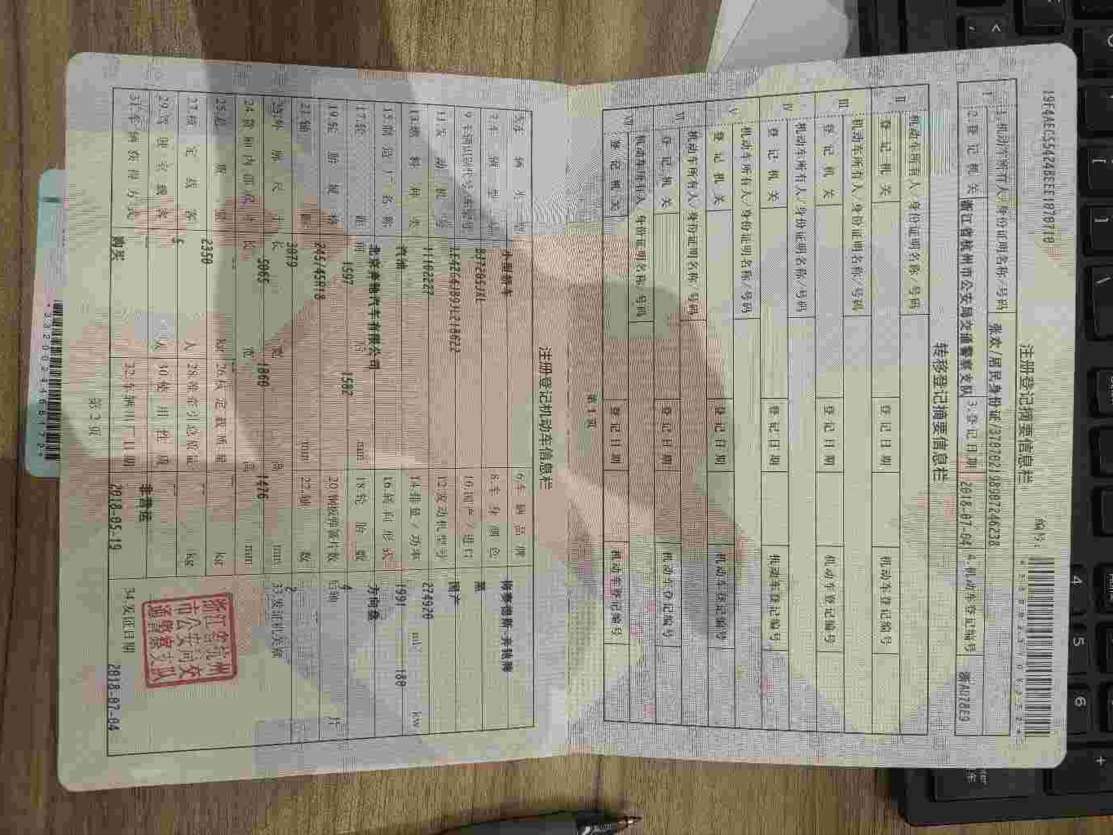 注册登记摘要信息栏
编号:
1.机动车所有人/身份证明名称/号码 张欢/居民身份证/370702198907246238
2.登记机关 浙江省杭州市公安局交通警察支队 3.登记日期 2018-07-04 4.机动车登记编号 浙AU78E9
转移登记摘要信息栏
Ⅱ 机动车所有人/身份证明名称/号码
登记机关 登记日期 机动车登记编号
Ⅲ 机动车所有人/身份证明名称/号码
登记机关 登记日期 机动车登记编号
Ⅳ 机动车所有人/身份证明名称/号码
登记机关 登记日期 机动车登记编号
Ⅴ 机动车所有人/身份证明名称/号码
登记机关 登记日期 机动车登记编号
Ⅵ 机动车所有人/身份证明名称/号码
登记机关 登记日期 机动车登记编号
Ⅶ 机动车所有人/身份证明名称/号码
登记机关 登记日期 机动车登记编号
第1页
注册登记机动车信息栏
5.车辆类型 小型轿车 6.车辆品牌 梅赛德斯-奔驰牌
7.车辆型号 8.车身颜色 黑
9.车辆识别代号/车架号 10.国产/进口 国产
11.发动机号 12.发动机型号 274920
13.燃料种类 汽油 14.排量/功率 1991 ml/ 180 kw
15.制造厂名称 北京奔驰汽车有限公司 16.转向形式 方向盘
17.轮距 前 1597 后 1582 mm 18.轮胎数 4
19.轮胎规格 245/45R18 20.钢板弹簧片数 后轴 片
21.轴距 3079 mm 22.轴数 2
23.外廓尺寸 长 5065 宽 1860 高 1476 mm 33.发证机关章
24.货厢内部尺寸 长 宽 高 mm
25.总质量 2350 kg 26.核定载质量 kg
27.核定载客 5 人 28.准牵引总质量 kg
29.驾驶室载客 人 30.使用性质 非营运
31.车辆获得方式 购买 32.车辆出厂日期 2018-05-19 34.发证日期 2018-07-04
第2页
浙江省杭州
市公安局交
通警察支队